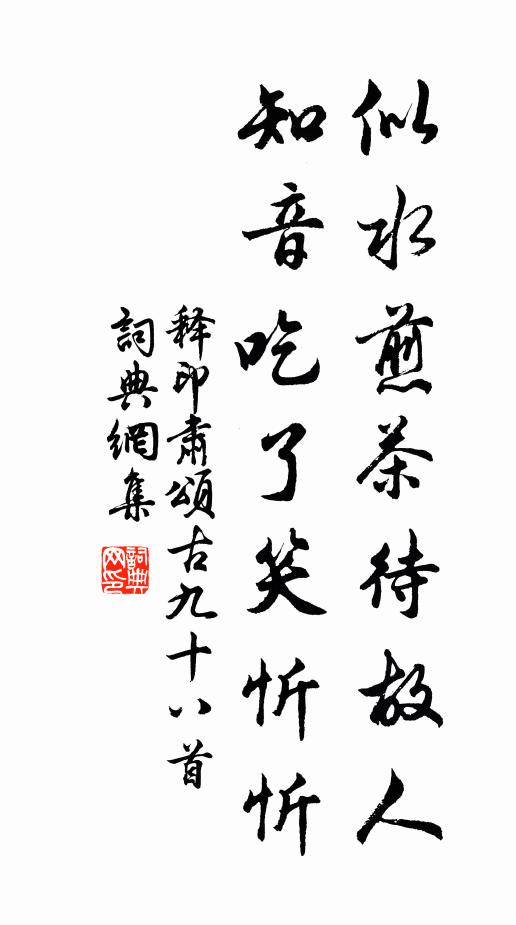 似水煎茶待故人
知音吃了笑忻忻
释印肃颂古九十八首
詞典網集
詞典網印